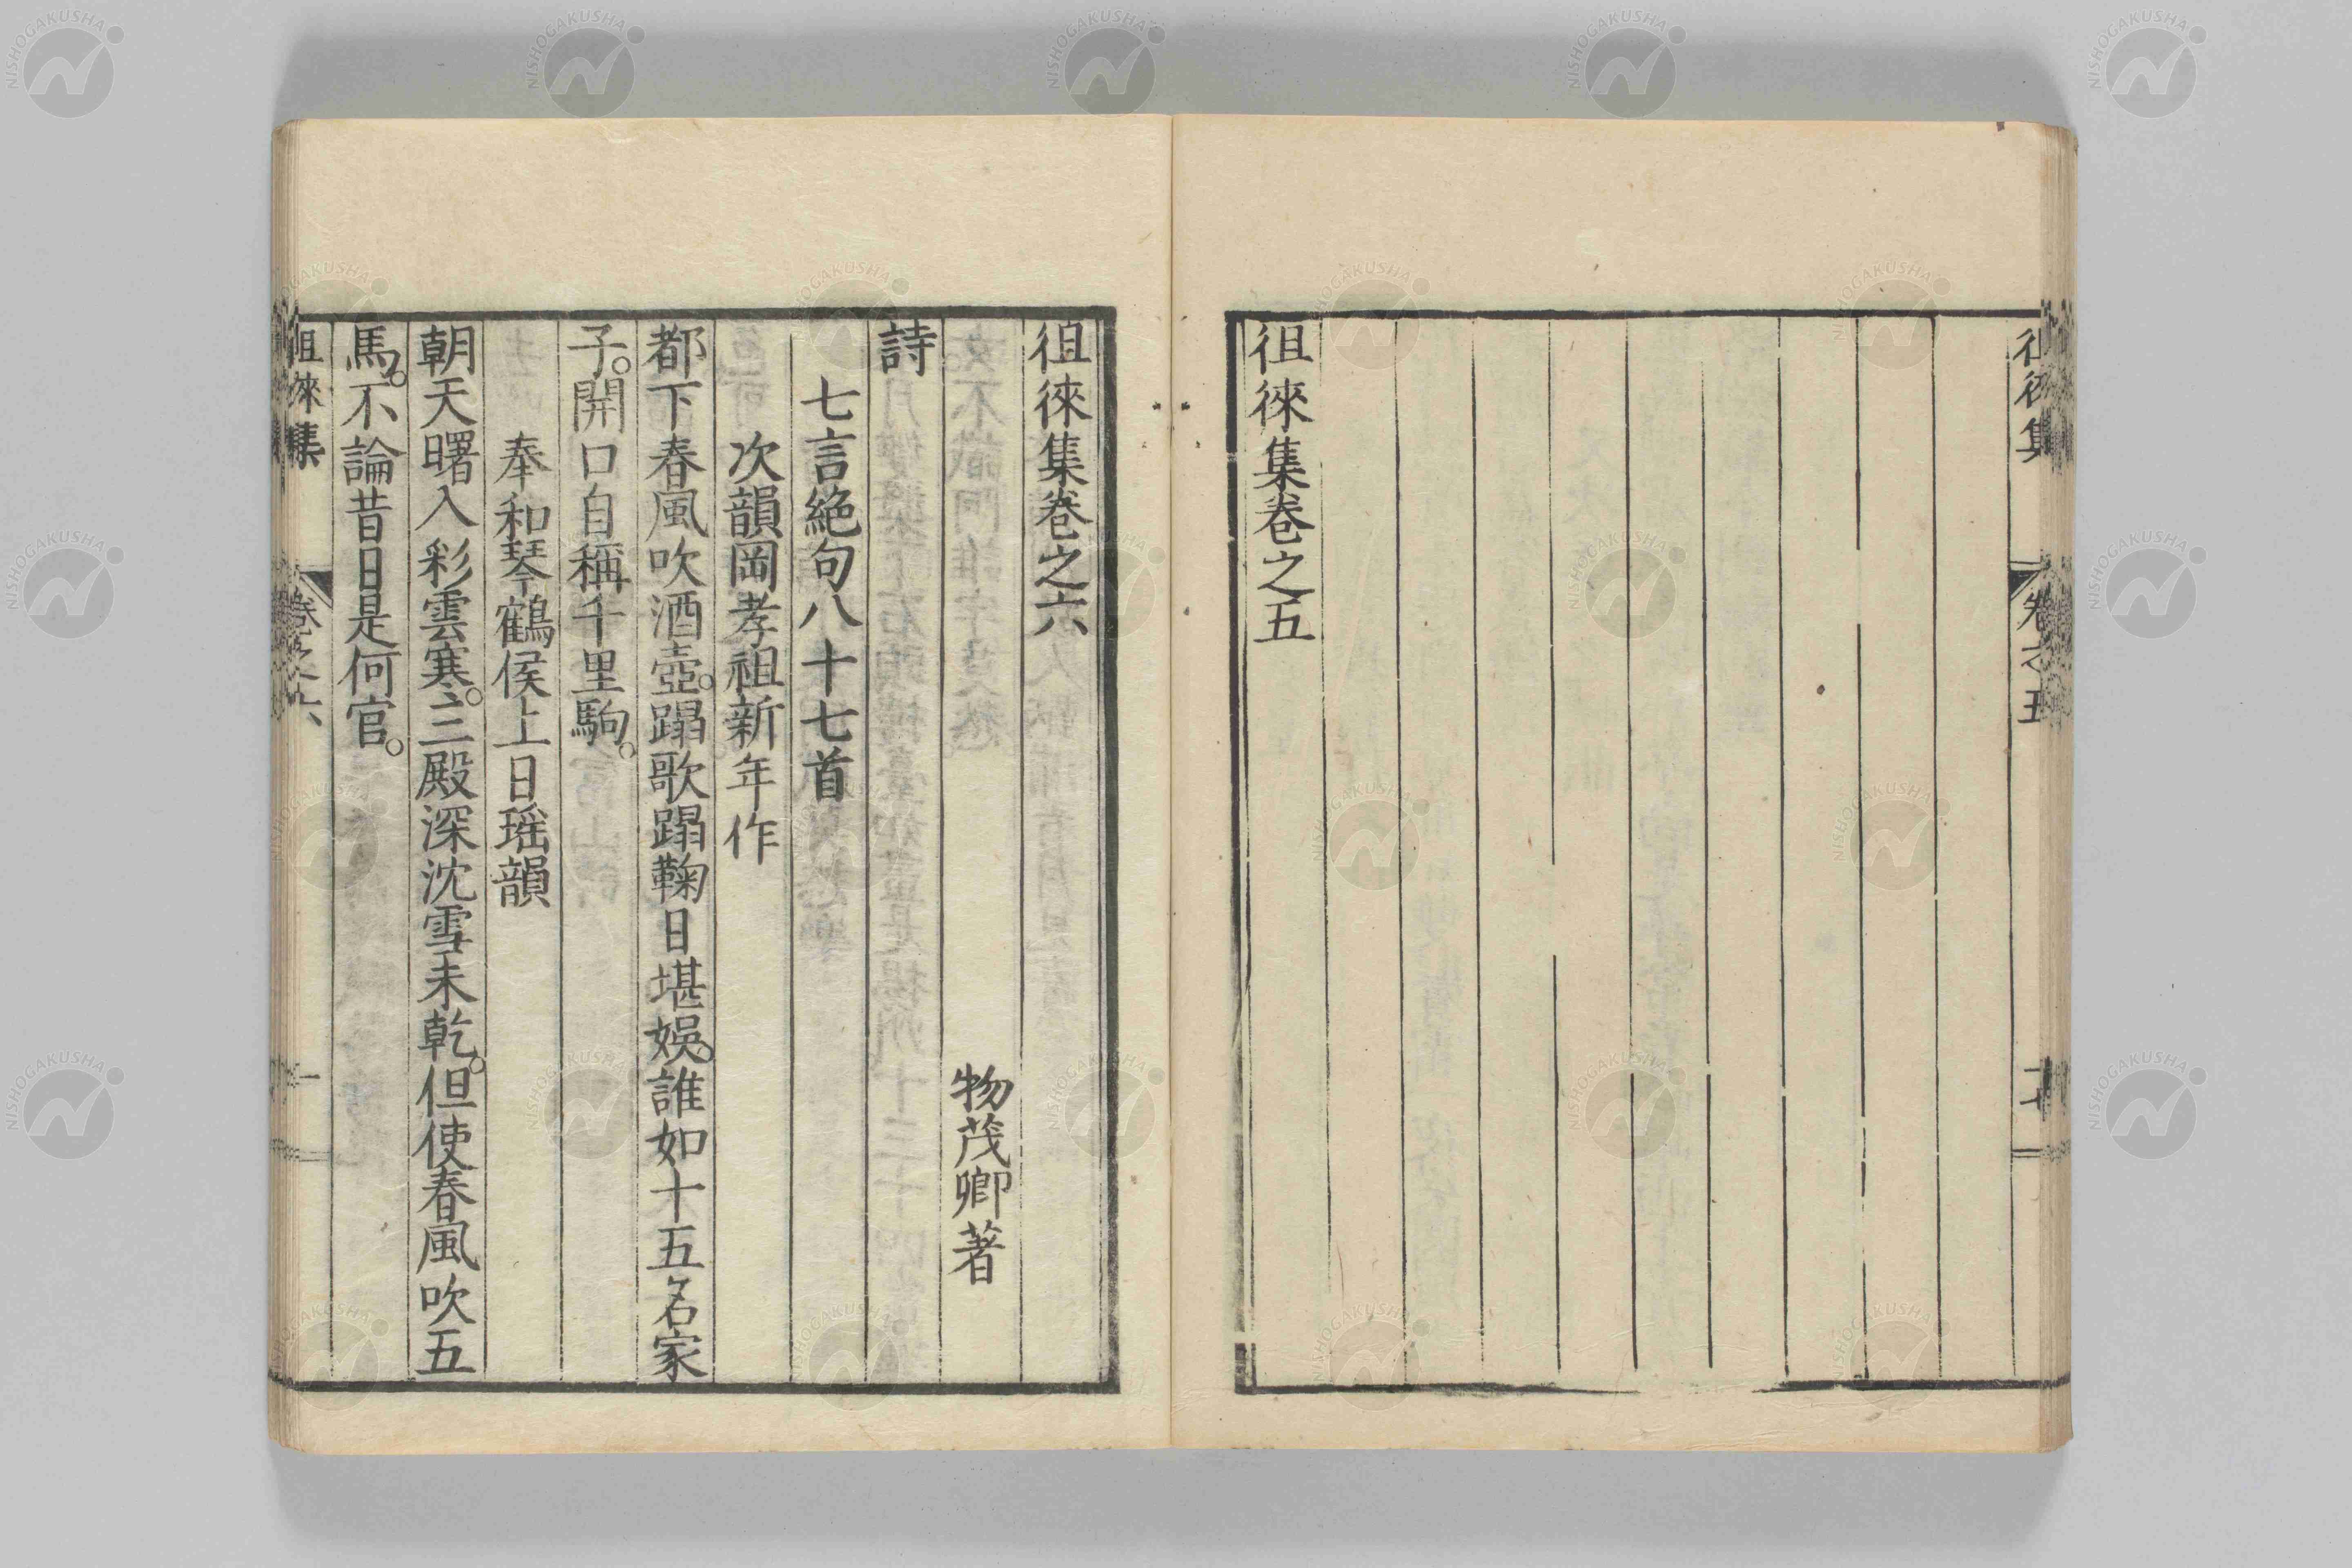 徂徠集卷之五
徂徠集卷之六
物茂卿著
詩
七言絶句八十七首
次韻岡孝祖新年作
都下春風吹酒壺。蹋歌蹋鞠日堪娛。誰如十五名家
子。開口自稱千里駒。
奉和琴鶴侯上日瑶韻
朝天曙入彩雲寒。三殿深沈雪未乾。但使春風吹五
馬。不論昔日是何官。
徂徠集 卷之六 一
NISHOGAKUSHA